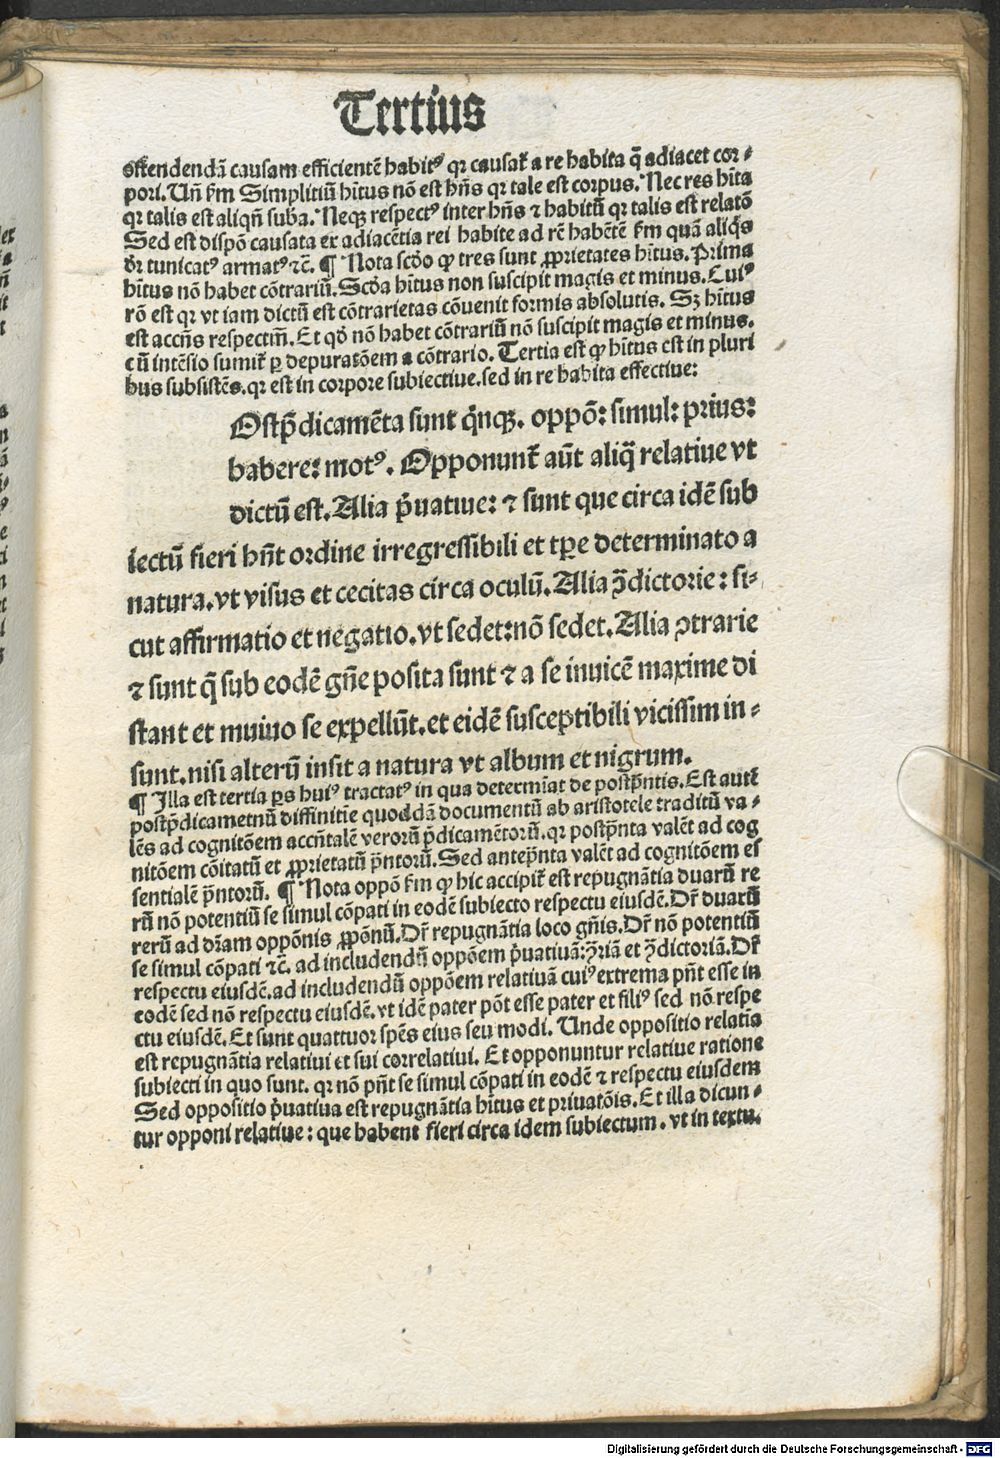 Tertius
oſtendendā cauſam efficientē habitꝰ qꝛ cauſat᷑ a re habita q̄ adiacet coꝛ⸗
poꝛi. Uñ ẜm Simplitiū hītus nō est hñs qꝛ tale est coꝛpus. Nec res hīta
qꝛ talis est aliqñ ſuba. Neqꝫ reſpectꝰ inter hñs ⁊ habitū qꝛ talis est relatō
Sed est diſpō cauſata ex adiacētia rei habite ad rē habētē ẜm quā aliq̄s
dr̄ tunicatꝰ armatꝰ ⁊c̄. ¶ Nota ſcd̄o ꝙ tres ſunt ꝓprietates hītus. Prima
hītus nō habet cōtrariū. Scd̄a hītus non ſuſcipit magis et minus. Cuiꝰ
rō est qꝛ vt iam dictū est cōtrarietas cōuenit foꝛmis abſolutis. Sꝫ hītus
est accñs reſpectiū. Et qd̄ nō habet cōtrariū nō ſuſcipit magis et minus.
cū intēſio ſumit᷑ ꝑ depuratōem a cōtrario. Tertia est ꝙ hītus est in pluri
bus ſubſistēs. qꝛ est in coꝛpoꝛe ſubiectiue. ſed in re habita effectiue:
Oſtp̄dicamēta ſunt q̇nqꝫ. oppō: ſimul: prius:
habere: motꝰ. Opponunt᷑ aūt aliq̄ relatiue vt
dictū est. Alia ṗuatiue: ⁊ ſunt que circa idē ſub
iectū fieri hñt oꝛdine irregreſſibili et tꝑe determinato a
natura. vt viſus et cecitas circa oculū. Alia ꝯ̄dictoꝛie: ſi⸗
cut affirmatio et negatio. vt ſedet: nō ſedet. Alia ꝯtrarie
⁊ ſunt q̄ ſub eodē gñe poſita ſunt ⁊ a ſe inuicē maxime di
ſtant et mutuo ſe expellūt. et eidē ſuſceptibili viciſſim in⸗
ſunt. niſi alterū inſit a natura vt album et nigrum.
¶ Illa est tertia ꝑs huiꝰ tractatꝰ in qua determīat de poſtp̄ntis. Est autē
poſtp̄dicametnū diffinitie quoddā documentū ab ariſtotele traditū va⸗
lēs ad cognitōem accñtalē veroꝛū p̄dicamētoꝛū. qꝛ poſtp̄nta valēt ad cog
nitōem cōitatū et ꝓprietatū p̄ntoꝛū. Sed antep̄nta valēt ad cognitōem eſ
ſentialē p̄ntoꝛū. ¶ Nota oppō ẜm ꝙ hic accipit᷑ est repugnātia duarū re
rū nō potentiū ſe ſimul cōpati in eodē ſubiecto reſpectu eiuſdē. Dr̄ duarū
rerū ad dr̄am oppōnis ꝓpōnū. Dr̄ repugnātia loco gñis. Dr̄ nō potentiū
ſe ſimul cōpati ⁊c̄. ad includendū oppōem ṗuatiuā: ꝯ̄riā et ꝯ̄dictoꝛiā. Dr̄
reſpectu eiuſdē. ad includendū oppōem relatiuā cuiꝰ extrema pñt eſſe in
eodē ſed nō reſpectu eiuſdē. vt idē pater pōt eſſe pater et filiꝰ ſed nō reſpe
ctu eiuſdē. Et ſunt quattuoꝛ ſpēs eius ſeu modi. Unde oppoſitio relatīa
est repugnātia relatiui et ſui coꝛrelatiui. Et opponuntur relatiue ratione
ſubiecti in quo ſunt. qꝛ nō pñt ſe ſimul cōpati in eodē ⁊ reſpectu eiuſdem
Sed oppoſitio ṗuatiua est repugnātia hītus et priuatōis. Et illa dicun⸗
tur opponi relatiue: que habent fieri circa idem ſubiectum. vt in textu.
Digitalisierung gefördert durch die Deutsche Forschungsgemeinschaft - DFG